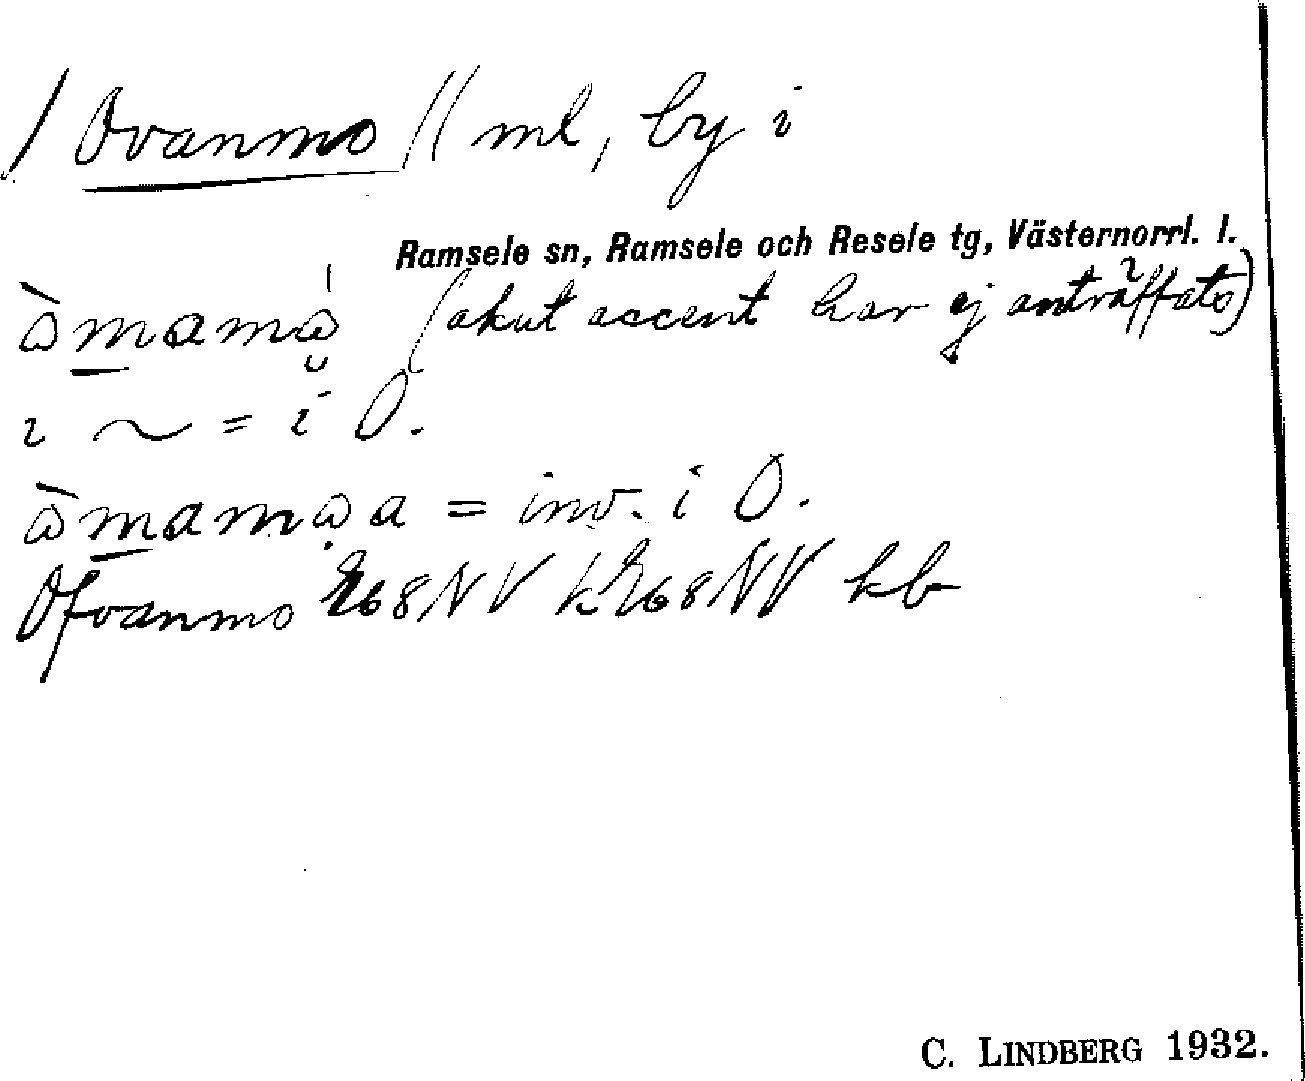 / Ovanmo // ml, by i
Ramsele sn, Ramsele och Resele tg, Västernorrl. l.
(akut accent har ej anträffats)
i ~ = i O.
= inv. i O.
Ofvanmo 268NV k268NV kb
C. LINDBERG 1932.